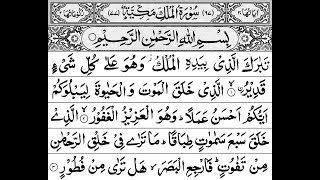 سُوْرَةُ الْمُلْكِ مَكِّيَّةٌ
بِسْمِ اللهِ الرَّحْمٰنِ الرَّحِيْمِ
تَبٰرَكَ الَّذِيْ بِيَدِهِ الْمُلْكُ وَهُوَ عَلٰى كُلِّ شَيْءٍ
قَدِيْرٌ ۙ الَّذِيْ خَلَقَ الْمَوْتَ وَالْحَيٰوةَ لِيَبْلُوَكُمْ
اَيُّكُمْ اَحْسَنُ عَمَلًا ؕ وَهُوَ الْعَزِيْزُ الْغَفُوْرُ ۙ الَّذِيْ
خَلَقَ سَبْعَ سَمٰوٰتٍ طِبَاقًا ؕ مَا تَرٰى فِيْ خَلْقِ الرَّحْمٰنِ
مِنْ تَفٰوُتٍ ؕ فَارْجِعِ الْبَصَرَ ۙ هَلْ تَرٰى مِنْ فُطُوْرٍ